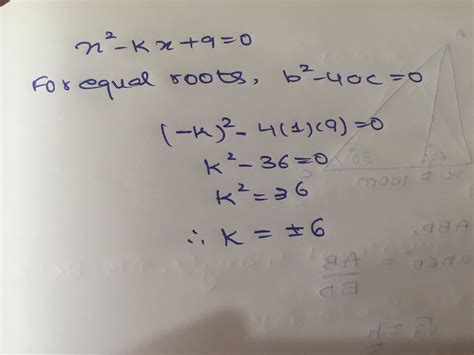 x² - kx + 9 = 0
For equal roots, b² - 4ac = 0
(-k)² - 4(1)(9) = 0
k² - 36 = 0
k² = 36
∴ k = ±6